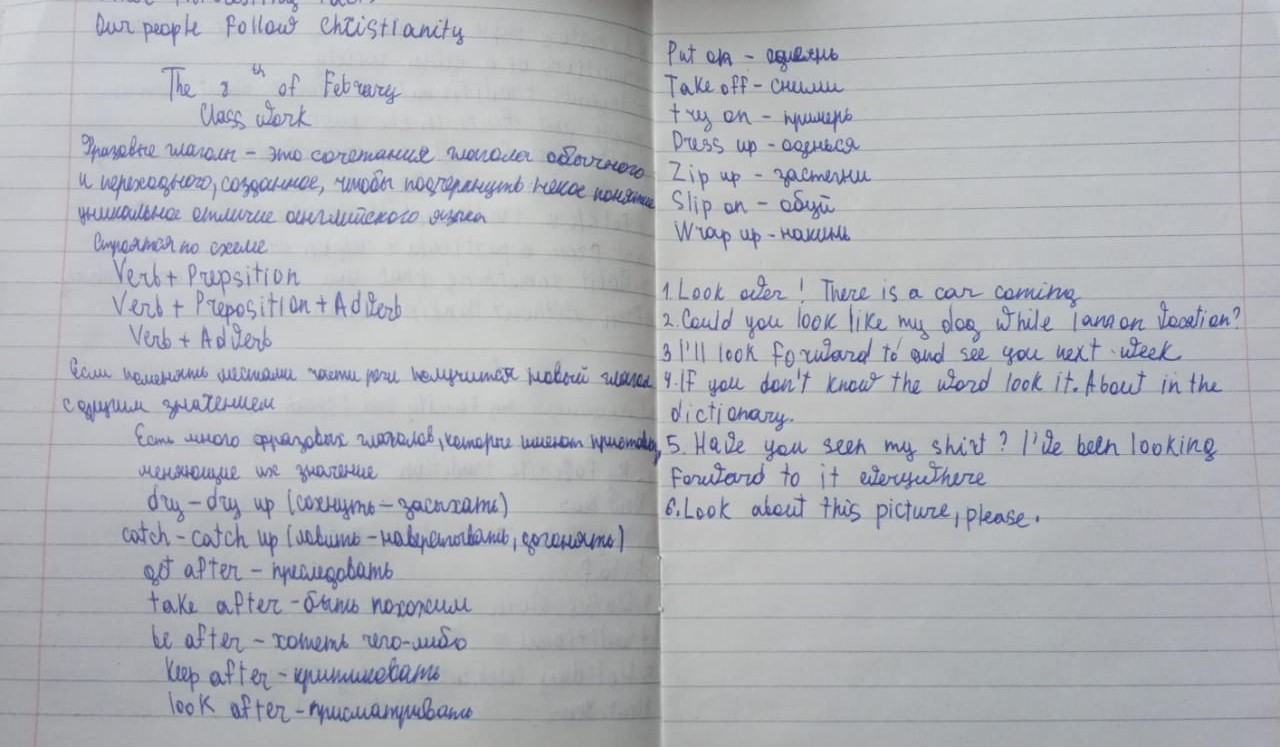 Our people follow Christianity
The 8th of Febrary
Class work
Фразовые глаголы - это сочетания глагола обычного
и переходного, созданное, чтобы подчеркнуть некое понятие
уникальное отличие английского языка
Строятся по схеме
Verb + Prepsition
Verb + Preposition + Adverb
Verb + Adverb
Если поменять местами части речи получится новый глагол
с другим значением
Есть много фразовых глаголов, которые имеют приставки,
меняющие их значение
dry - dry up (сохнуть - засыхать)
catch - catch up (ловить - навёрстывать, догонять)
get after - преследовать
take after - быть похожим
be after - хотеть чего-либо
keep after - критиковать
look after - присматривать
Put on - одень
Take off - сними
try on - примерь
Dress up - оденься
Zip up - застегни
Slip on - обуй
Wrap up - накинь
1. Look over! There is a car coming
2. Could you look like my dog while I am on vacation?
3 I'll look forward to and see you next week
4. If you don't know the word look it. About in the
dictionary.
5. Have you seen my shirt? I've been looking
forward to it everywhere
6. Look about this picture, please.